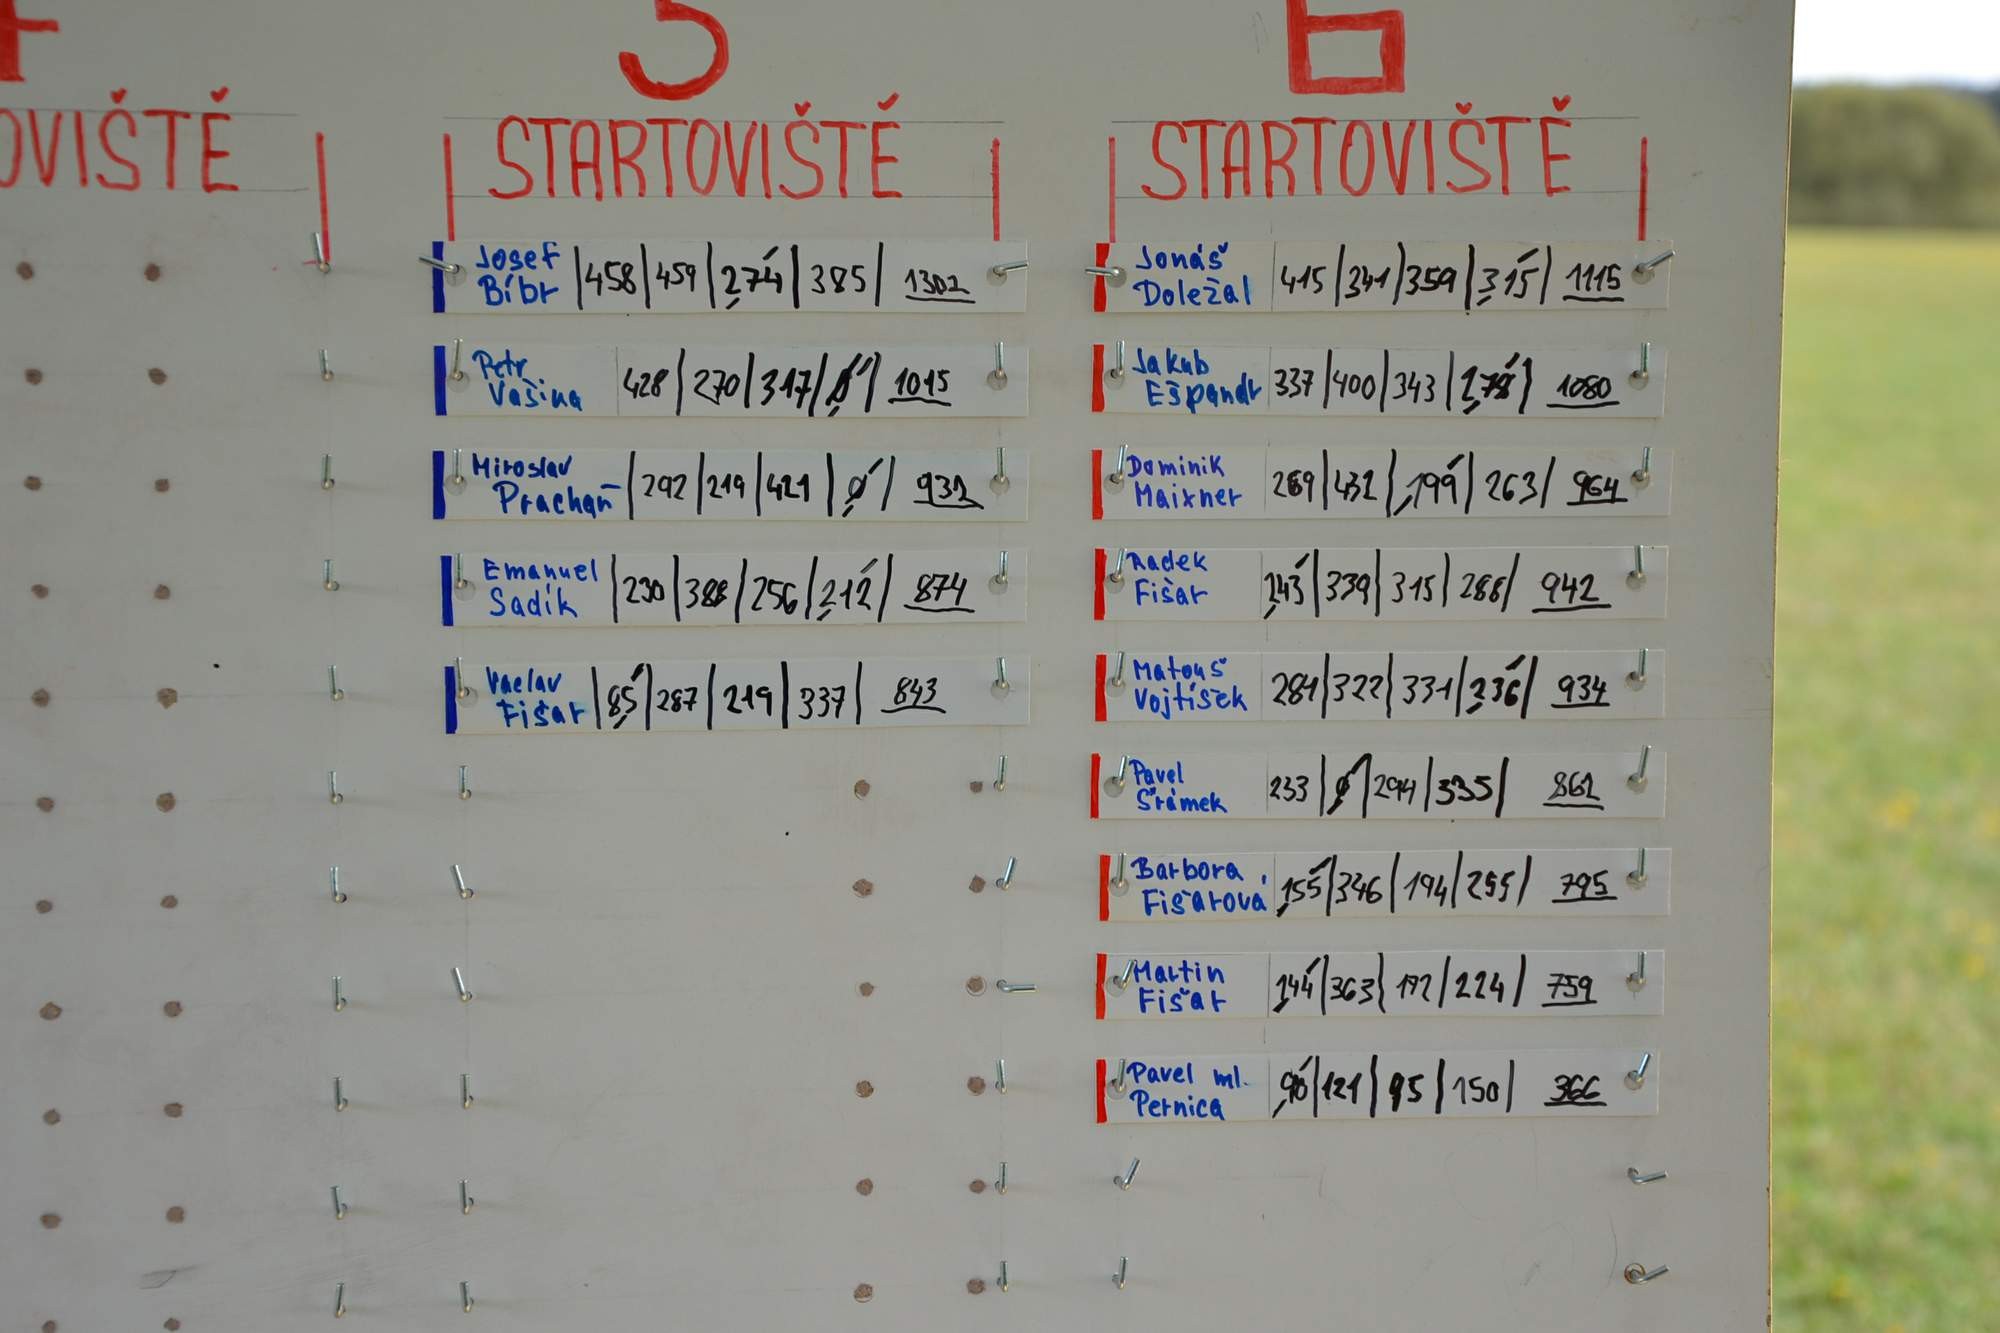 4 5 6
OVIŠTĚ STARTOVIŠTĚ STARTOVIŠTĚ
Josef
Bíbr 458 459 274 385 1302
Petr
Vašina 428 270 317 0 1015
Miroslav
Prachaň 292 219 421 0 932
Emanuel
Sadík 230 388 256 212 874
Vaclav
Fišar 85 287 219 337 843
Jonáš
Doležal 415 341 359 315 1115
Jakub
Ešpandr 337 400 343 278 1080
Dominik
Maixner 269 432 199 263 964
Radek
Fišar 243 339 315 288 942
Matouš
Vojtíšek 281 322 331 236 934
Pavel
Šrámek 233 0 294 335 862
Barbora
Fišarová 155 346 194 255 795
Martin
Fišar 144 363 172 224 759
Pavel ml.
Pernica 90 121 95 150 366